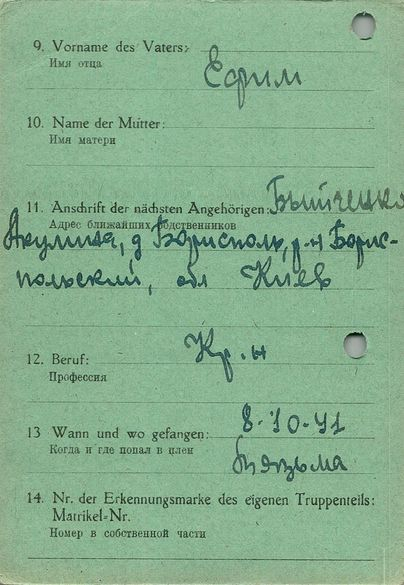 9. Vorname des Vaters:
Имя отца
Ефим
10. Name der Mutter:
Имя матери
11. Anschrift der nächsten Angehörigen:
Адрес ближайших родственников
Акулина, д Борисполь, р-н Борис-
польский, обл Киев
12. Beruf: Кр.н
Профессия
13 Wann und wo gefangen: 8-10-41
Когда и где попал в плен
Вязьма
14. Nr. der Erkennungsmarke des eigenen Truppenteils:
Matrikel-Nr.
Номер в собственной части